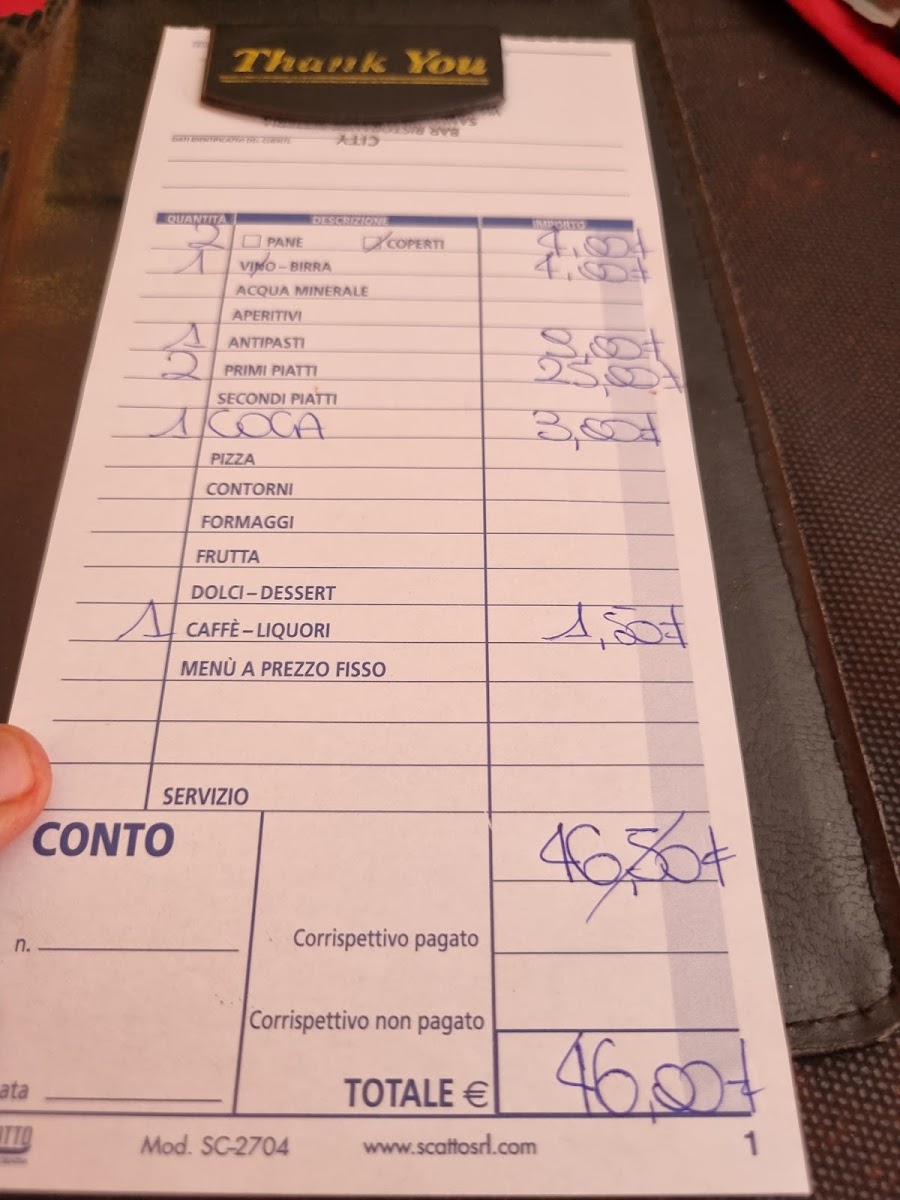 Thank You
DATI IDENTIFICATIVI DEL CLIENTE
CITY
BAR
QUANTITÀ DESCRIZIONE IMPORTO
2 PANE COPERTI 4,00€
1 VINO – BIRRA 4,00€
ACQUA MINERALE
APERITIVI
1 ANTIPASTI 9,00€
2 PRIMI PIATTI 25,00€
SECONDI PIATTI
1 COCA 3,00€
PIZZA
CONTORNI
FORMAGGI
FRUTTA
DOLCI – DESSERT
1 CAFFÈ – LIQUORI 1,50€
MENÙ A PREZZO FISSO
SERVIZIO
CONTO 46,50€
n. Corrispettivo pagato
Corrispettivo non pagato
ata TOTALE € 46,00€
Mod. SC-2704 www.scattosrl.com 1